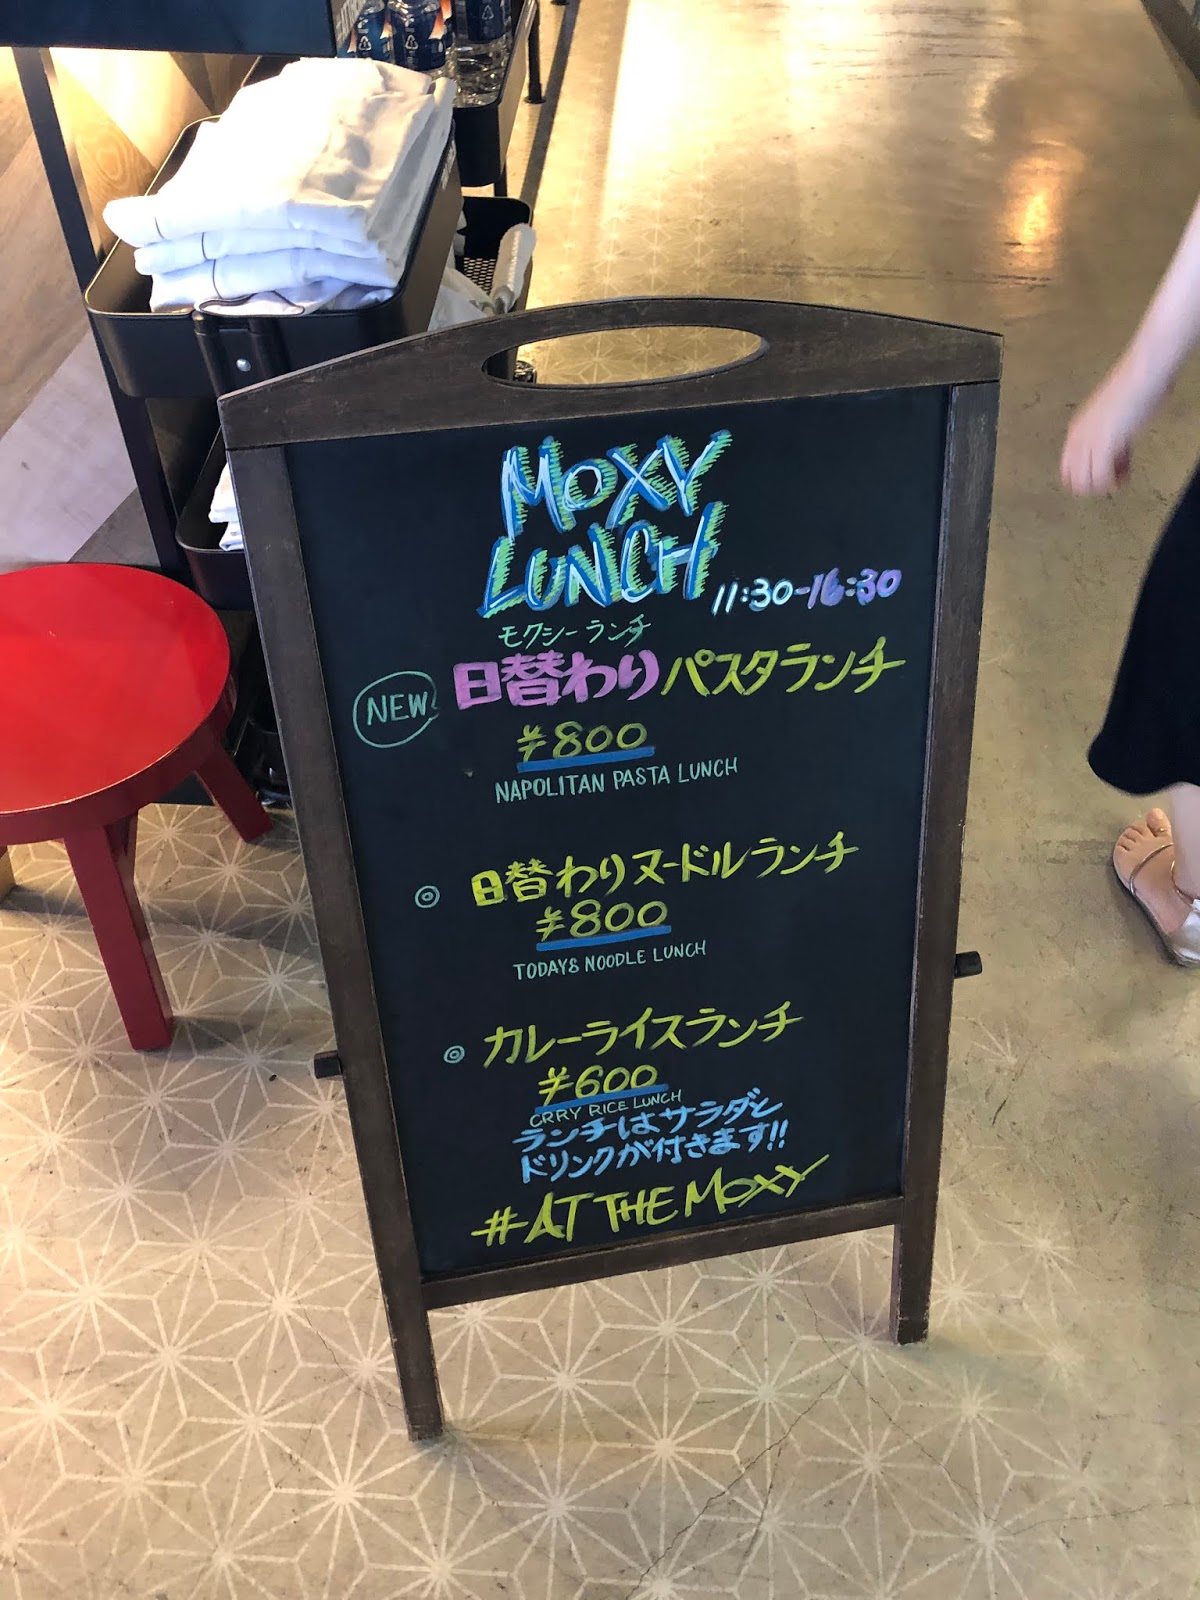 MOXY
LUNCH
11:30-16:30
モクシーランチ
NEW
日替わりパスタランチ
¥800
NAPOLITAN PASTA LUNCH
◎ 日替わりヌードルランチ
¥800
TODAYS NOODLE LUNCH
◎ カレーライスランチ
¥600
CRRY RICE LUNCH
ランチはサラダと
ドリンクが付きます!!
#AT THE MOXY